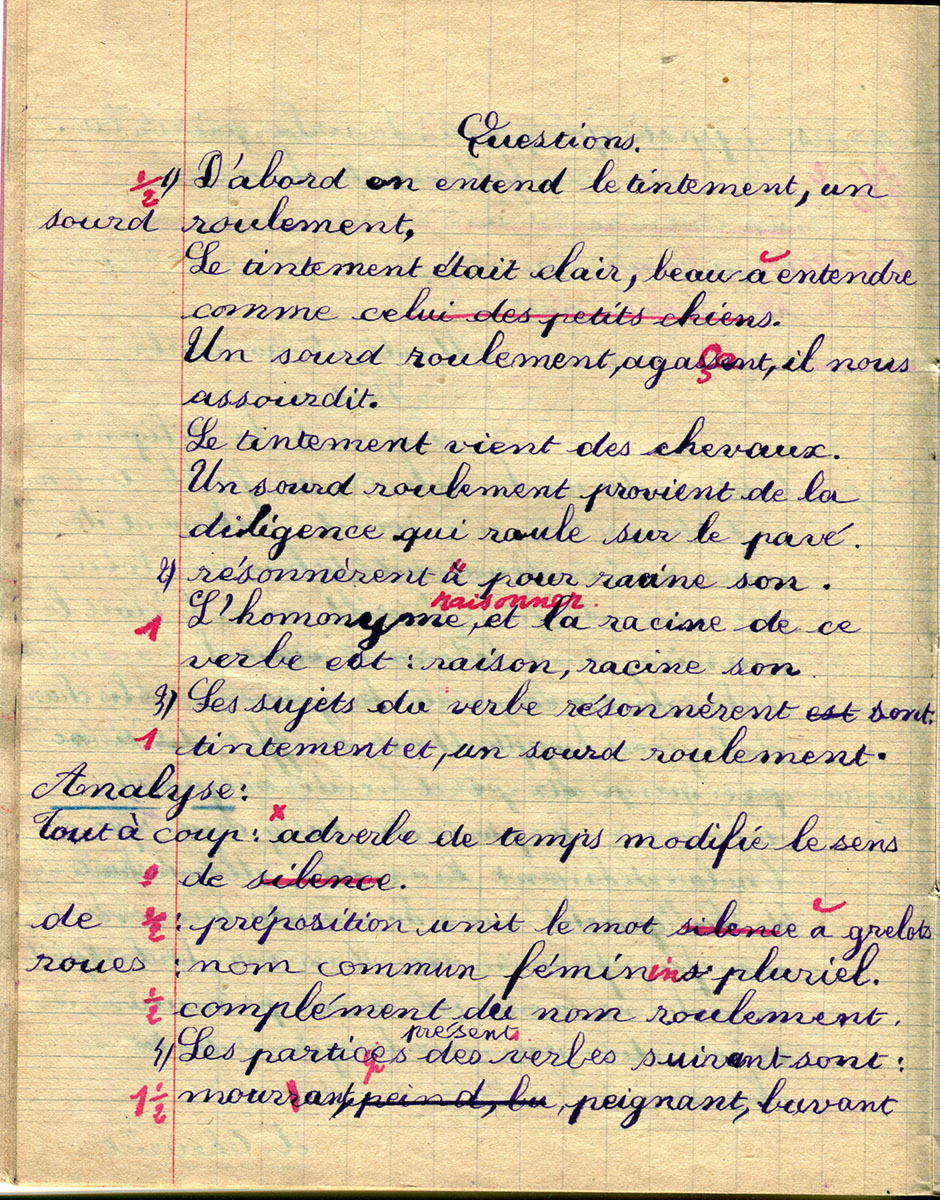 Questions.
½ 1) D'abord on entend le tintement, un
sourd roulement,
Le tintement était clair, beau à entendre
comme celui des petits chiens.
Un sourd roulement, agassent, il nous
assourdit.
Le tintement vient des chevaux.
Un sourd roulement provient de la
diligence qui roule sur le pavé.
2) résonnèrent à pour racine son.
raisonner.
1 L'homonyme, et la racine de ce
verbe est : raison, racine son
3) Les sujets du verbe résonnèrent est sont.
1 tintement et, un sourd roulement.
Analyse :
Tout à coup : x adverbe de temps modifie le sens
0 de silence.
de ½ : préposition unit le mot silence à grelots
roues : nom commun féminin pluriel.
½ complément du nom roulement.
présent
4) Les particips des verbes suivant sont :
1 ½ mourrant, peind, bu, peignant, buvant